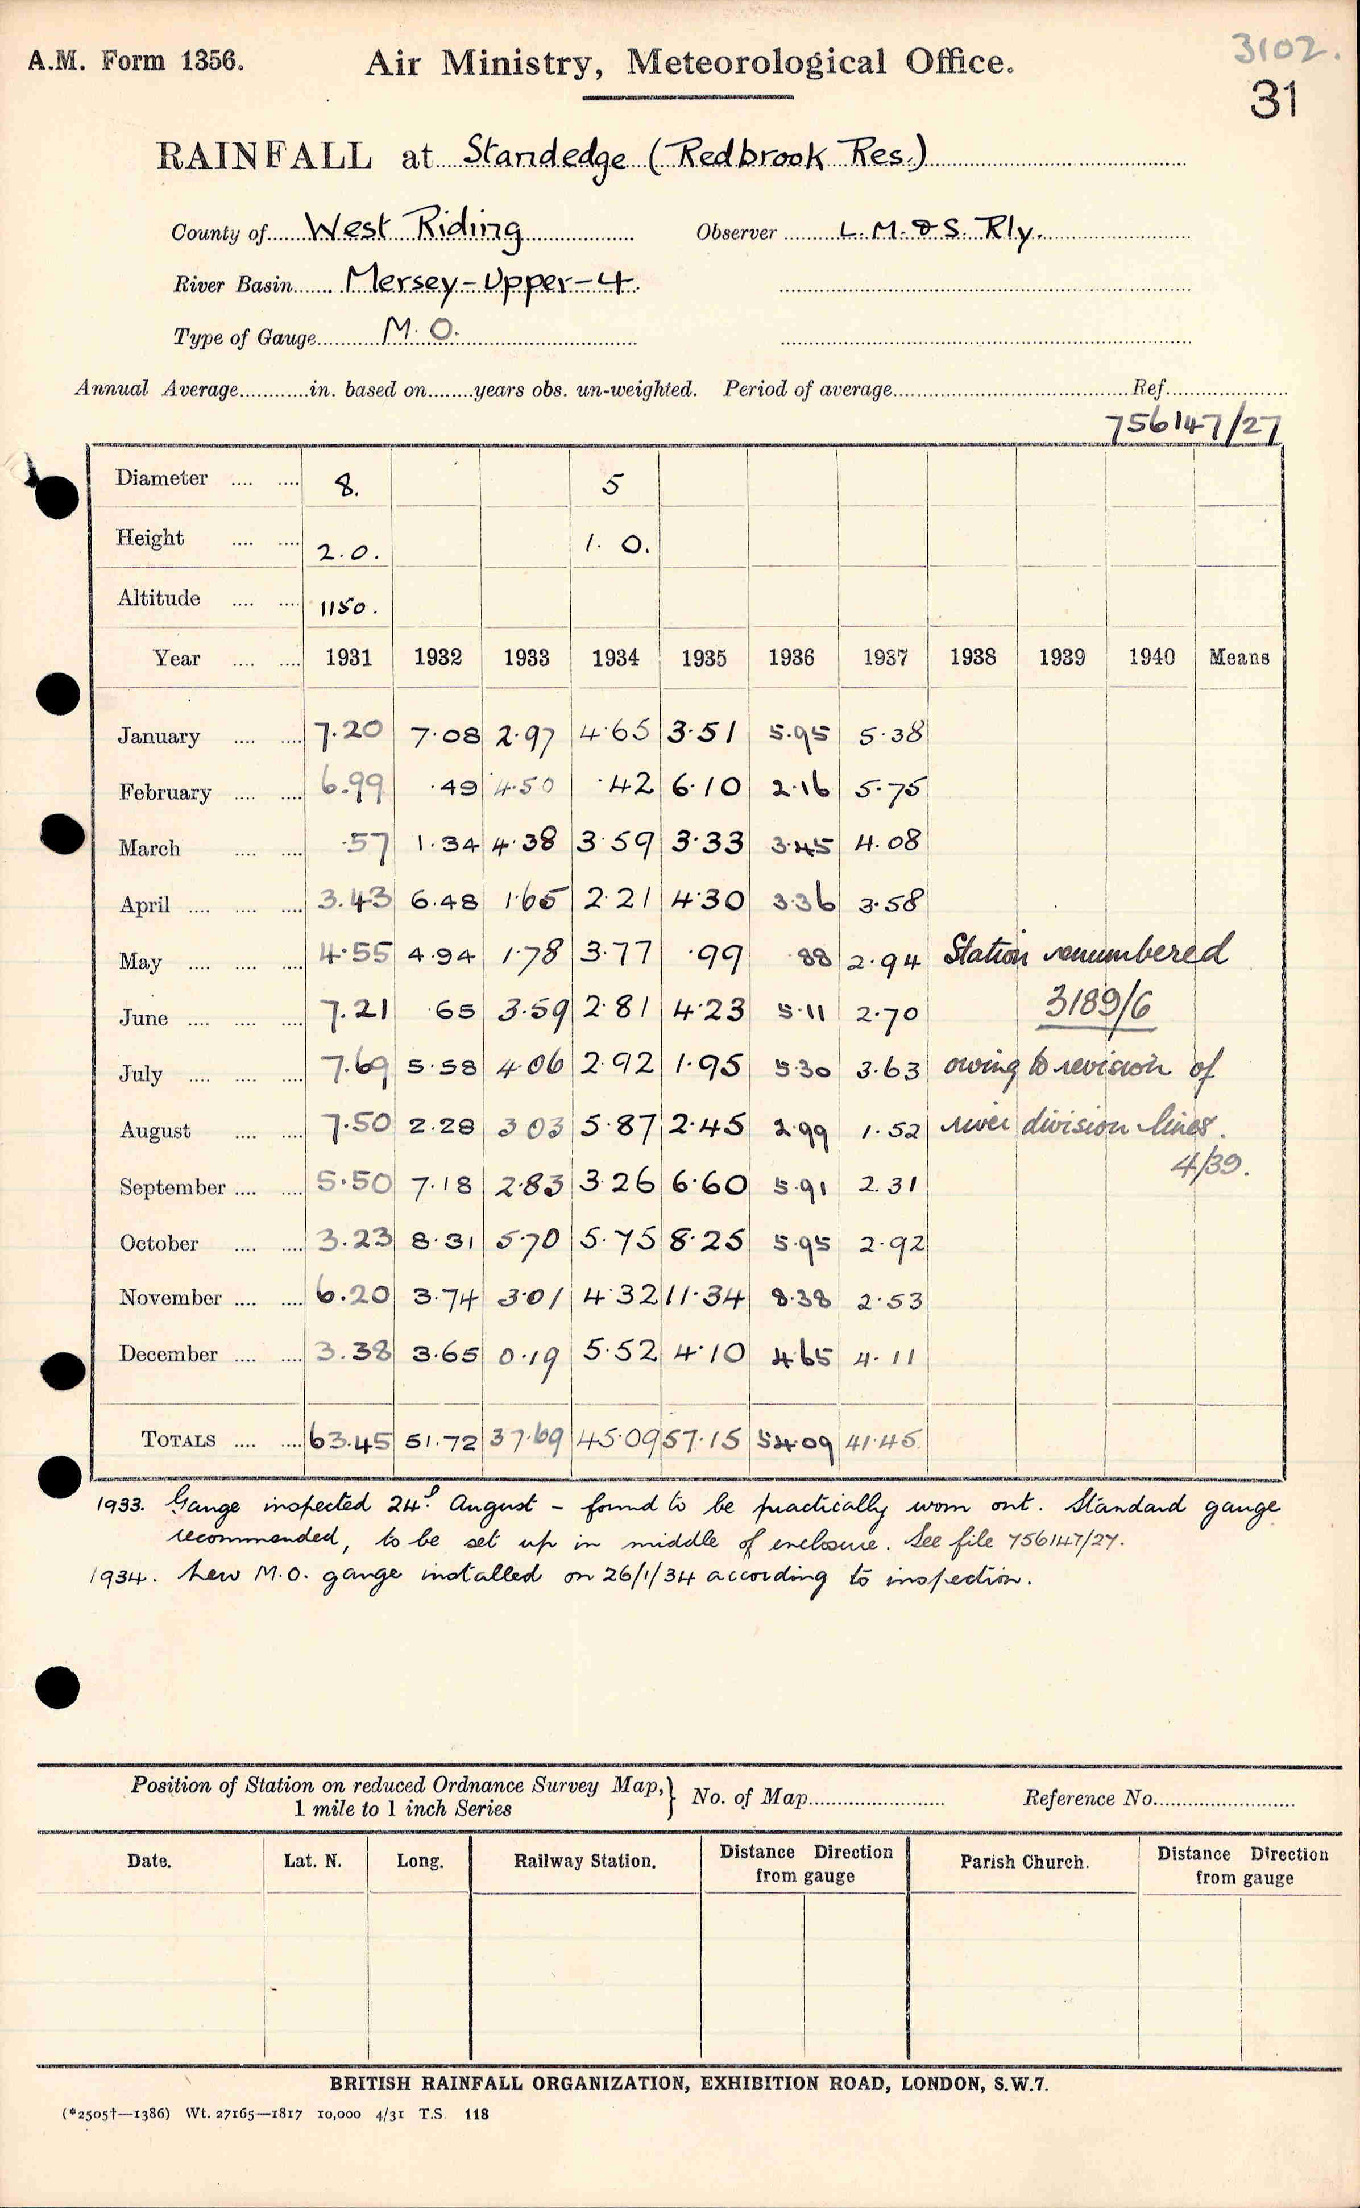 A.M. Form 1356.
Air Ministry, Meteorological Office.
3102.
31
RAINFALL at Standedge (Redbrook Res.)
County of West Riding Observer L.M.&S. Rly.
River Basin Mersey-Upper-4.
Type of Gauge M.O.
Annual Average in. based on years obs. un-weighted. Period of average Ref.
756147/27
Diameter 8. 5
Height 2.0. 1.0.
Altitude 1150.
Year 1931 1932 1933 1934 1935 1936 1937 1938 1939 1940 Means
January 7.20 7.08 2.97 4.65 3.51 5.95 5.38
February 6.99 .49 4.50 .42 6.10 2.16 5.75
March .57 1.34 4.38 3.59 3.33 3.45 4.08
April 3.43 6.48 1.65 2.21 4.30 3.36 3.58
May 4.55 4.94 1.78 3.77 .99 .88 2.94 Station renumbered
June 7.21 .65 3.59 2.81 4.23 5.11 2.70 3189/6
July 7.69 5.58 4.06 2.92 1.95 5.30 3.63 owing to revision of
August 7.50 2.28 3.03 5.87 2.45 2.99 1.52 river division lines.
4/39.
September 5.50 7.18 2.83 3.26 6.60 5.91 2.31
October 3.23 8.31 5.70 5.75 8.25 5.95 2.92
November 6.20 3.74 3.01 4.32 11.34 8.38 2.53
December 3.38 3.65 0.19 5.52 4.10 4.65 4.11
TOTALS 63.45 51.72 37.69 45.09 57.15 54.09 41.45
1933. Gauge inspected 24th August - found to be practically worn out. Standard gauge
recommended, to be set up in middle of enclosure. See file 756147/27.
1934. New M.O. gauge installed on 26/1/34 according to inspection.
Position of Station on reduced Ordnance Survey Map,
1 mile to 1 inch Series
} No. of Map Reference No.
Date. Lat. N. Long. Railway Station. Distance Direction from gauge Parish Church. Distance Direction from gauge
BRITISH RAINFALL ORGANIZATION, EXHIBITION ROAD, LONDON, S.W.7.
(*2505†—1386) Wt. 27165—1817 10,000 4/31 T.S. 118